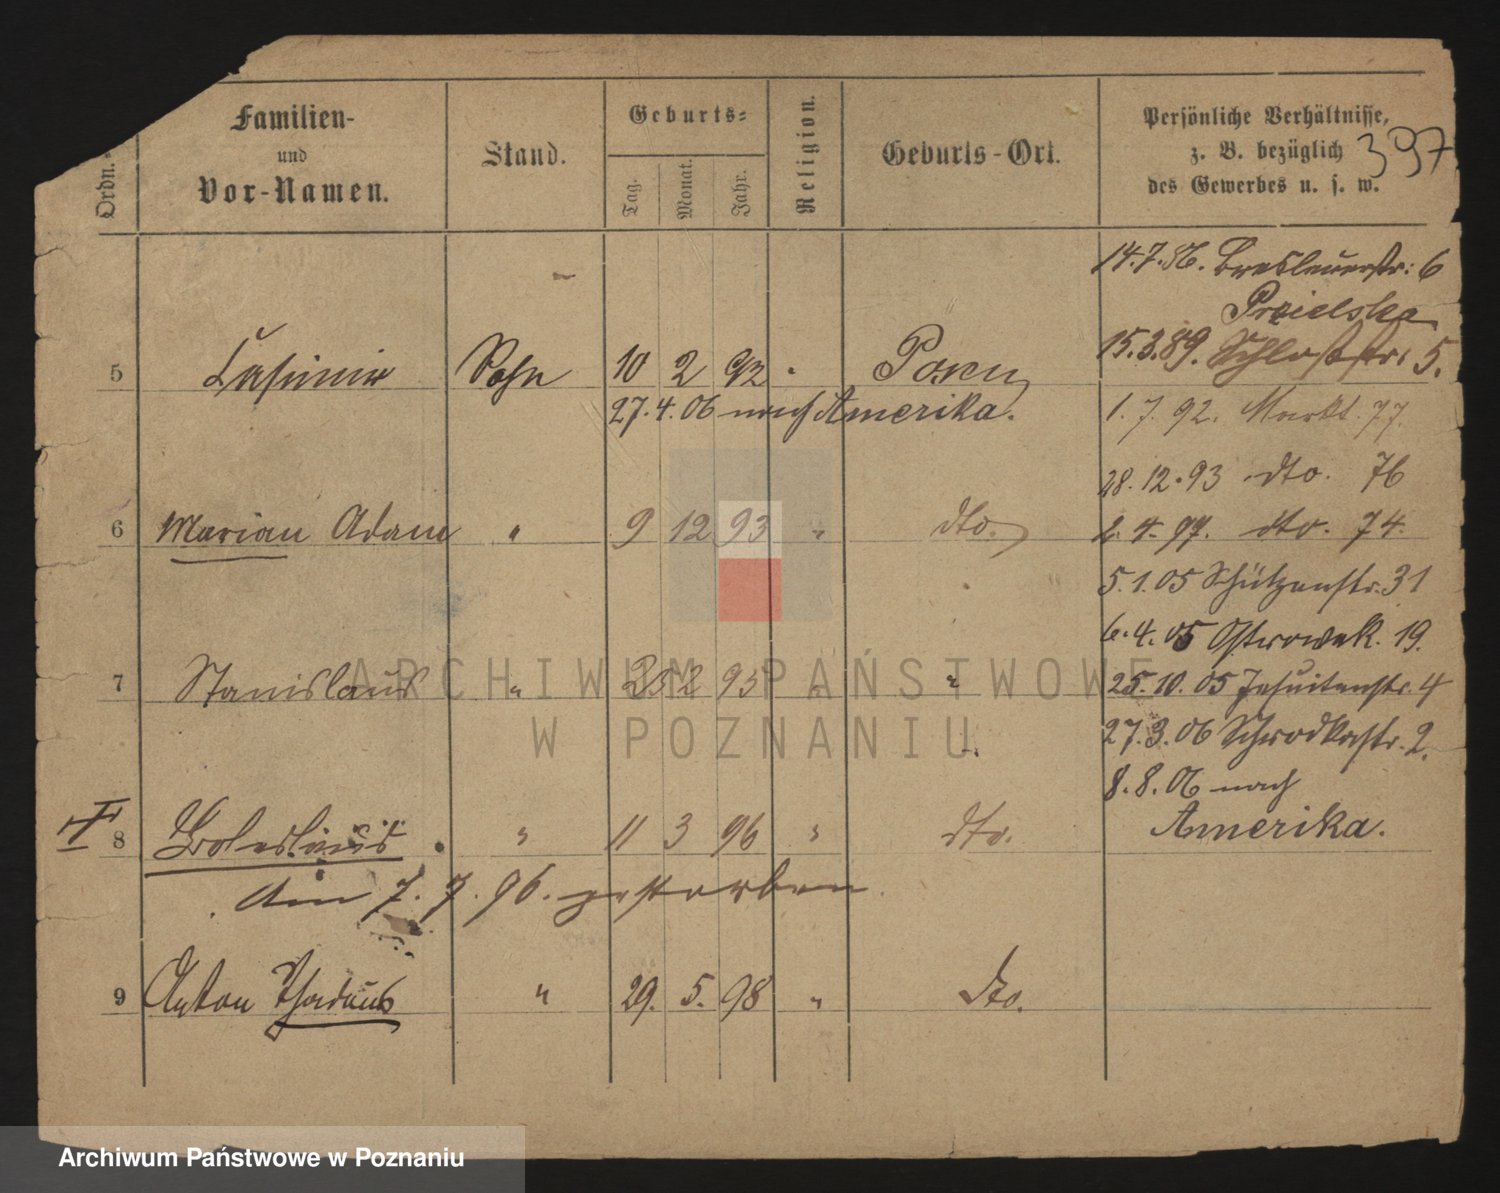 Ordn.=
Familien-
und
Vor-Namen.
Stand.
Geburts=
Tag.
Monat.
Jahr.
Religion.
Geburts-Ort.
Persönliche Verhältnisse,
z. B. bezüglich
des Gewerbes u. s. w.
397
14.7.86. Breslauerstr: 6
15.3.89. Schloßstr: 5.
5 Casimir Sohn 10 2 92 " Posen
27.4.06 nach Amerika.
1.7.92. Markt. 77.
28.12.93 dto. 76
6 Marian Adam " 9 12 93 " dto.
2.4.97. dto. 74.
5.1.05 Schützenstr. 31
6.4.05 Ostrowek. 19.
7 Stanislaus " 25 2 95 " "
25.10.05 Jesuitenstr. 4
27.3.06 Schrodkastr. 2.
8.8.06 nach
Amerika.
8 Boleslaus " 11 3 96 " dto.
Am 7.7.96. gestorben
9 Anton Thadeus " 29. 5. 98 " dto.
ARCHIWUM PAŃSTWOWE
W POZNANIU
Archiwum Państwowe w Poznaniu